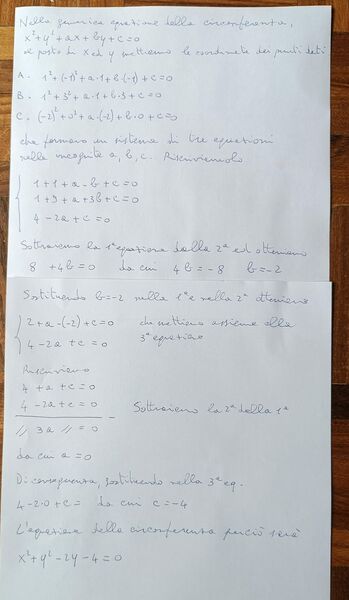 Nella generica equazione della circonferenza,
x²+y²+ax+by+c=0
al posto di x ed y mettiamo le coordinate dei punti dati
A. 1²+(-1)²+a·1+b·(-1)+c=0
B. 1²+3²+a·1+b·3+c=0
C. (-2)²+0²+a·(-2)+b·0+c=0
che formano un sistema di tre equazioni
nelle incognite a, b, c. Riscriviamolo
1+1+a-b+c=0
1+9+a+3b+c=0
4-2a+c=0
Sottraiamo la 1ª equazione dalla 2ª ed otteniamo
8+4b=0 da cui 4b=-8 b=-2
Sostituendo b=-2 nella 1ª e nella 2ª otteniamo
2+a-(-2)+c=0 che mettiamo assieme alla
4-2a+c=0 3ª equazione
Riscriviamo
4+a+c=0
4-2a+c=0 - Sottraiamo la 2ª dalla 1ª
// 3a // = 0
da cui a=0
Di conseguenza, sostituendo nella 3ª eq.
4-2·0+c= da cui c=-4
L'equazione della circonferenza perciò sarà
x²+y²-2y-4=0